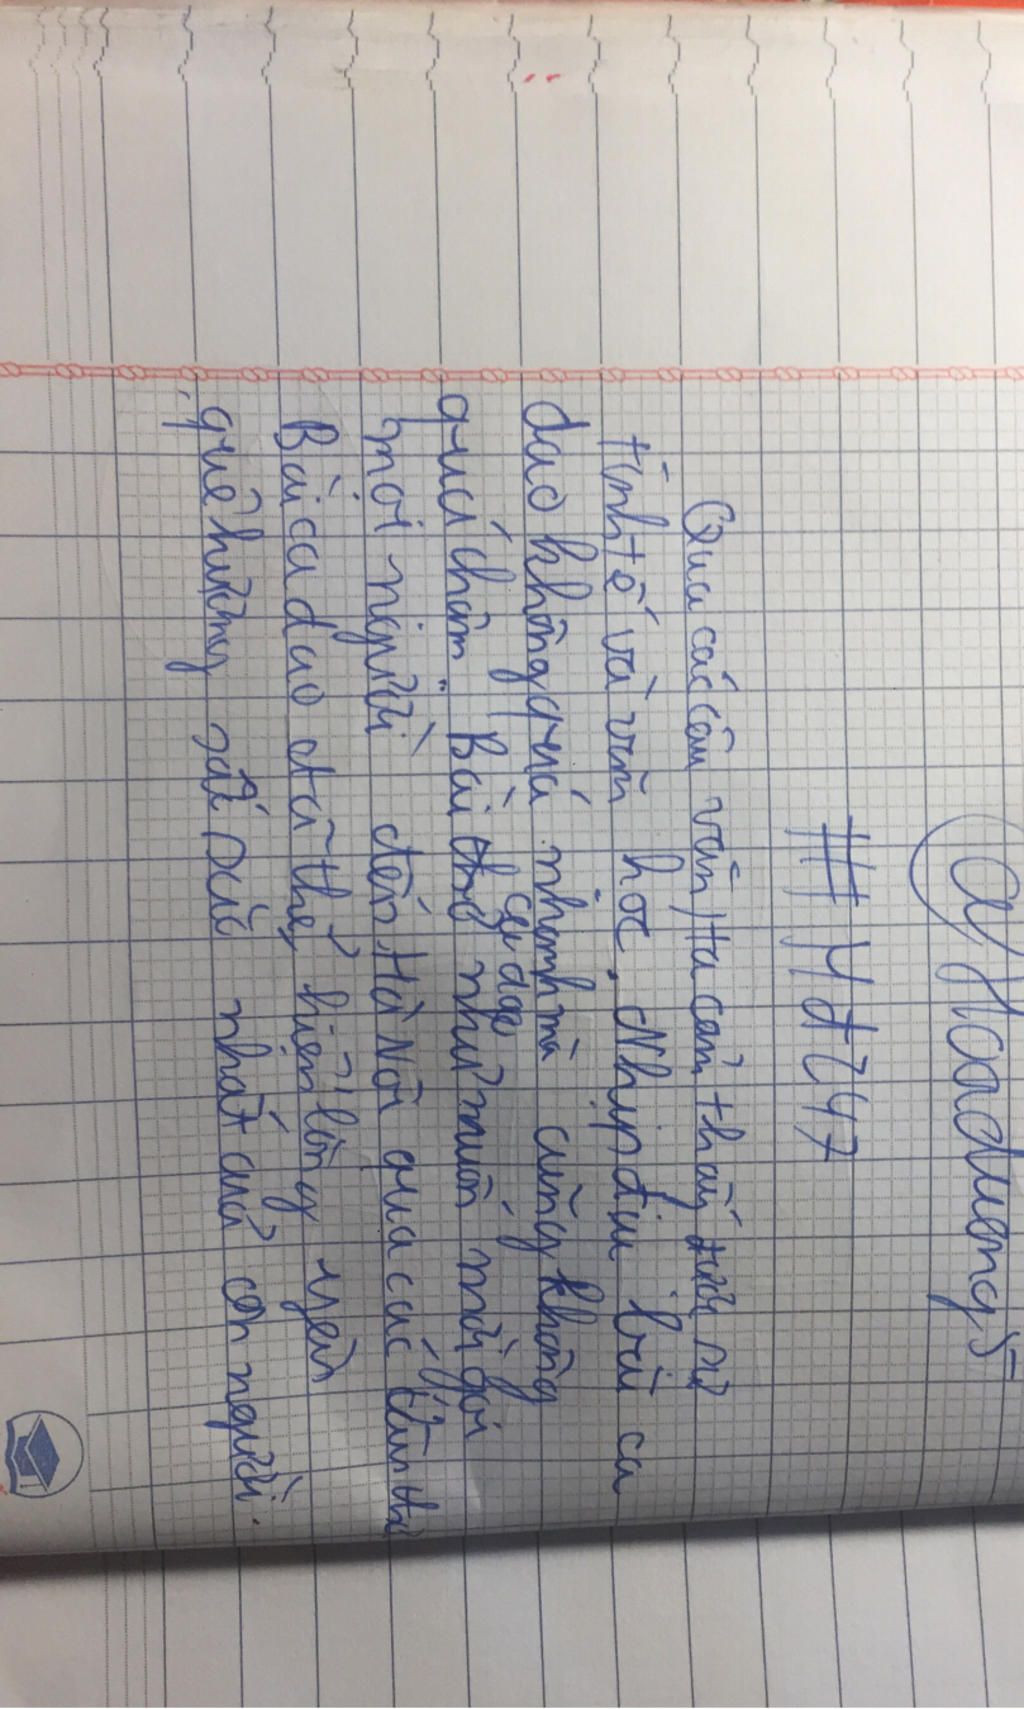 # Hđ 247
Qua các câu văn, ta cảm thấy sự
tinh tế và văn học. Nhịp điệu bài ca
dao không quá nhanh mà cũng không
quá chậm. Bài thơ như muốn mời gọi
ca dao
mọi người đến Hà Nội qua các
Bài ca dao đã thể hiện lòng yêu
quê hương sâu sắc nhất của con người.